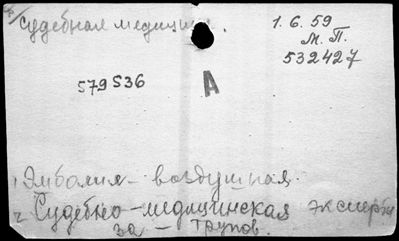 Судебная медицина.
1.6.59
М.П.
532427
579536
А
1 Эмболия – воздушная.
2 Судебно-медицинская эксперти
за – трупов.